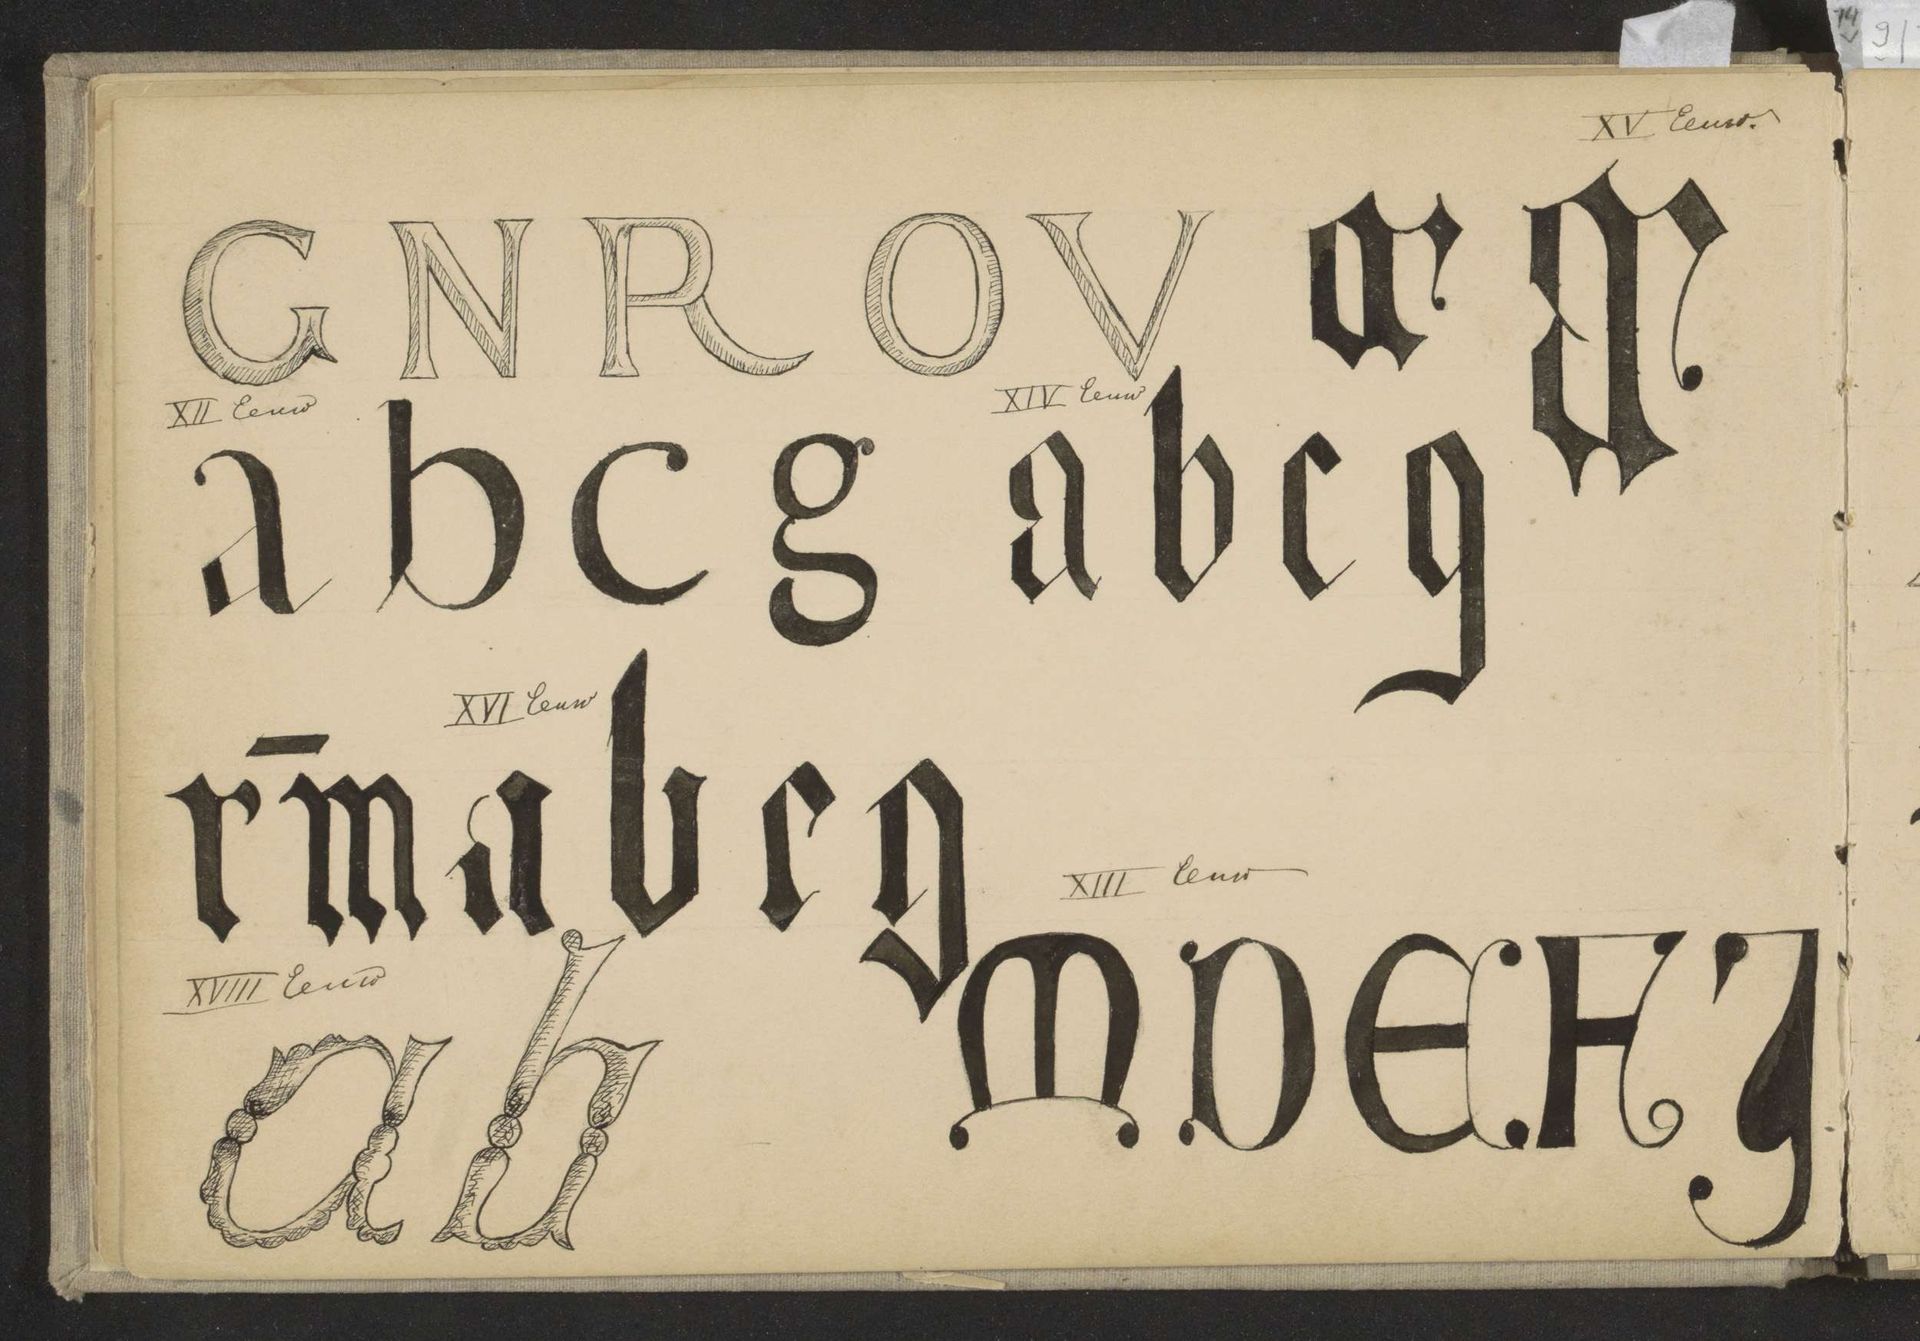 XV Eeuw.
G N R O V
XII Eeuw
XIV Eeuw
a b c g
a b c g
XVI Eeuw
r m̄ a b c g
XIII Eeuw
M D E F Y
XVIII Eeuw
a b